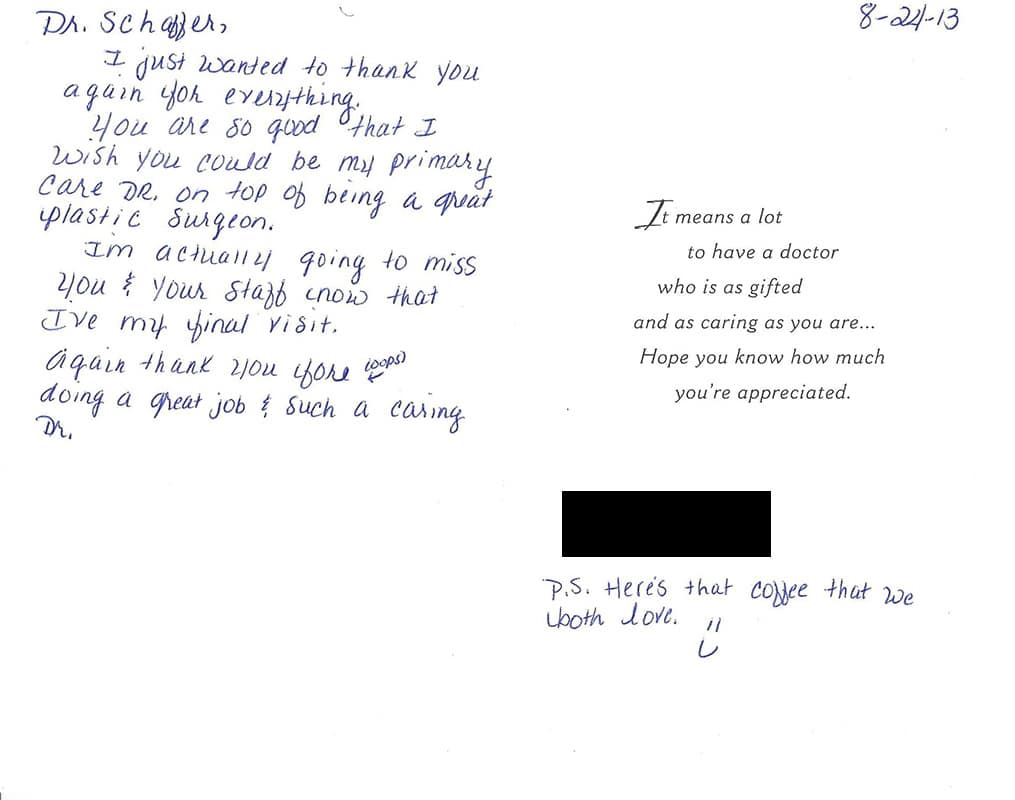 Dr. Schaffer,
I just wanted to thank you
again for everything.
You are so good that I
wish you could be my primary
care DR. on top of being a great
plastic surgeon.
Im actually going to miss
you & your staff now that
I've my final visit.
Again thank you fore (oops)
doing a great job & such a caring
Dr.
8-24-13
It means a lot
to have a doctor
who is as gifted
and as caring as you are...
Hope you know how much
you're appreciated.
P.S. Here's that coffee that we
both love.